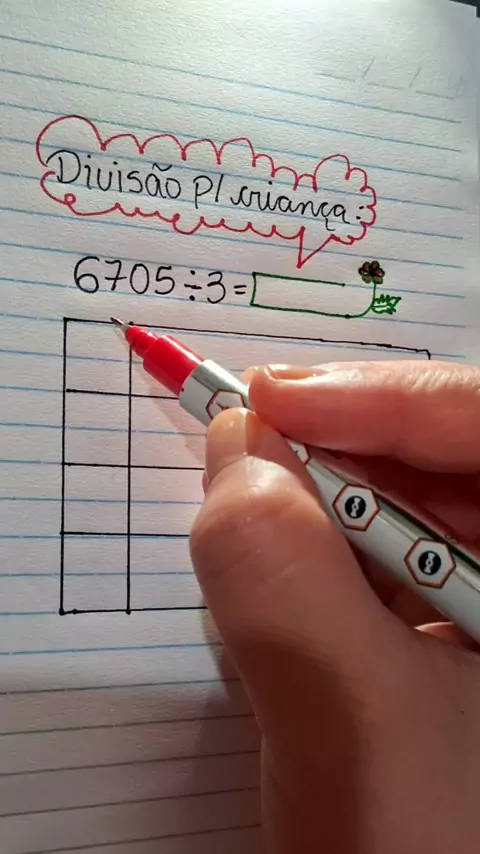 Divisão p/ criança:
6705÷3=